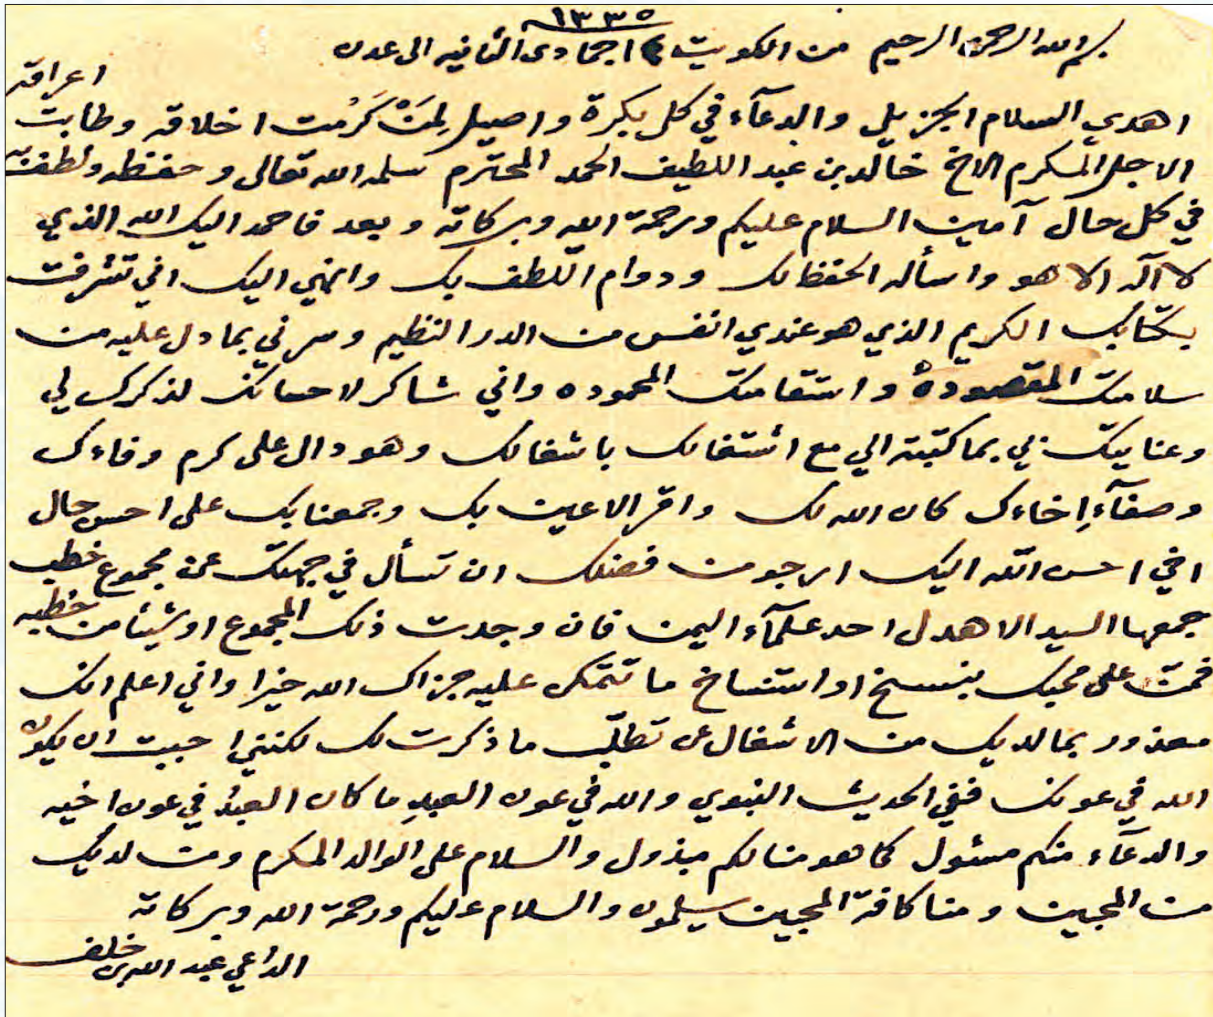 ١٣٣٥
بسم الله الرحمن الرحيم من الكويت ١ جمادى الثانيه الى عدن
اهدي السلام الجزيل والدعآء في كل بكرة واصيل لِمَنْ كَرُمت اخلاقه وطابت اعراقه
الاجل المكرم الاخ خالد بن عبد اللطيف الحمد المحترم سلمه الله تعالى وحفظه ولطف به
في كل حال آمين السلام عليكم ورحمة الله وبركاته وبعد فاحمد اليك الله الذي
لا آله الا هو واسأله الحفظ لك ودوام اللطف بك وانهي اليك اني تشرفت
بكتابك الكريم الذي هو عندي انفس من الدر النظيم وسرني بما دل عليه من
سلامتك المقصودة واستقامتك المحموده واني شاكر لاحسانك لذكرك لي
وعنايتك بي بما كتبته الي مع اشتغالك باشغالك وهو دال على كرم وفاءك
وصفآءِ اِخاءك كان الله لك واقر الاعين بك وجمعنا بك على احسن حال
اخي احسن الله اليك ارجو من فضلك ان تسأل في جهتك عن مجموع خطب
جمعها السيد الاهدل احد علمآء اليمن فان وجدت ذلك المجموع او شيئا من خطبه
فمنّ على محبك بنسخ او استنساخ ما تتمكن عليه جزاك الله خيرا واني اعلم انك
معذور بما لديك من الاشغال عن تطلّب ما ذكرت لك لكنني احببت ان يكون
الله في عونك ففي الحديث النبوي والله في عون العبدِ ما كان العبدُ في عون اخيه
والدعآء منكم مسئول كما هو منا لكم مبذول والسلام على الوالد المكرم ومن لديك
من المحبين ومنا كافة المحبين يسلمون والسلام عليكم ورحمة الله وبركاته
الداعي عبد الله بن خلف